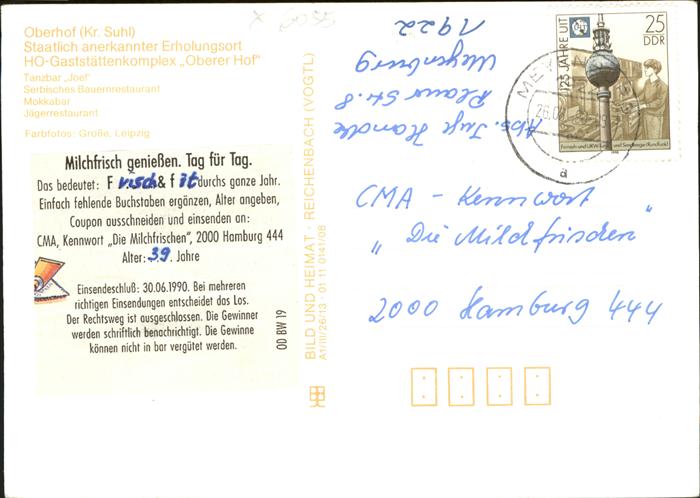 Oberhof (Kr. Suhl)
Staatlich anerkannter Erholungsort
HO-Gaststättenkomplex „Oberer Hof"
Tanzbar „Joel"
Serbisches Bauernrestaurant
Mokkabar
Jägerrestaurant
Farbfotos: Große, Leipzig
Milchfrisch genießen. Tag für Tag.
Das bedeutet: F risch & f it durchs ganze Jahr.
Einfach fehlende Buchstaben ergänzen, Alter angeben,
Coupon ausschneiden und einsenden an:
CMA, Kennwort „Die Milchfrischen", 2000 Hamburg 444
Alter: 39. Jahre
Einsendeschluß: 30.06.1990. Bei mehreren
richtigen Einsendungen entscheidet das Los.
Der Rechtsweg ist ausgeschlossen. Die Gewinner
werden schriftlich benachrichtigt. Die Gewinne
können nicht in bar vergütet werden.
OD BW 19
BILD UND HEIMAT · REICHENBACH (VOGTL)
A1/III/26/13 01 11 0141/08
Abs. Inge
Plauer Str. 8
Meyenburg
1922
125 JAHRE UIT
25
DDR
CMA - Kennwort
„Die Milchfrischen"
2000 Hamburg 444